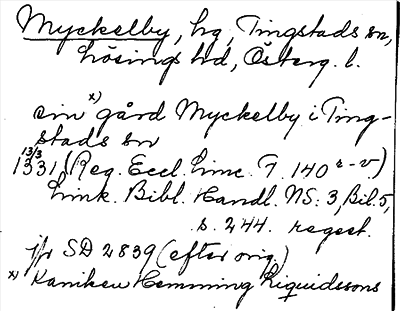 Myckelby, hg, Tingstads sn,
Lösings hd, Österg. l.
x)
sin gård Myckelby i Ting-
stads sn
13/3
1331 (Reg. Eccl. Linc. T. 140 r-v)
Link. Bibl. Handl. NS: 3, Bil. 5,
s. 244. regest.
jfr SD 2839 (efter orig.)
x) Kaniken Hemming Liquidssons